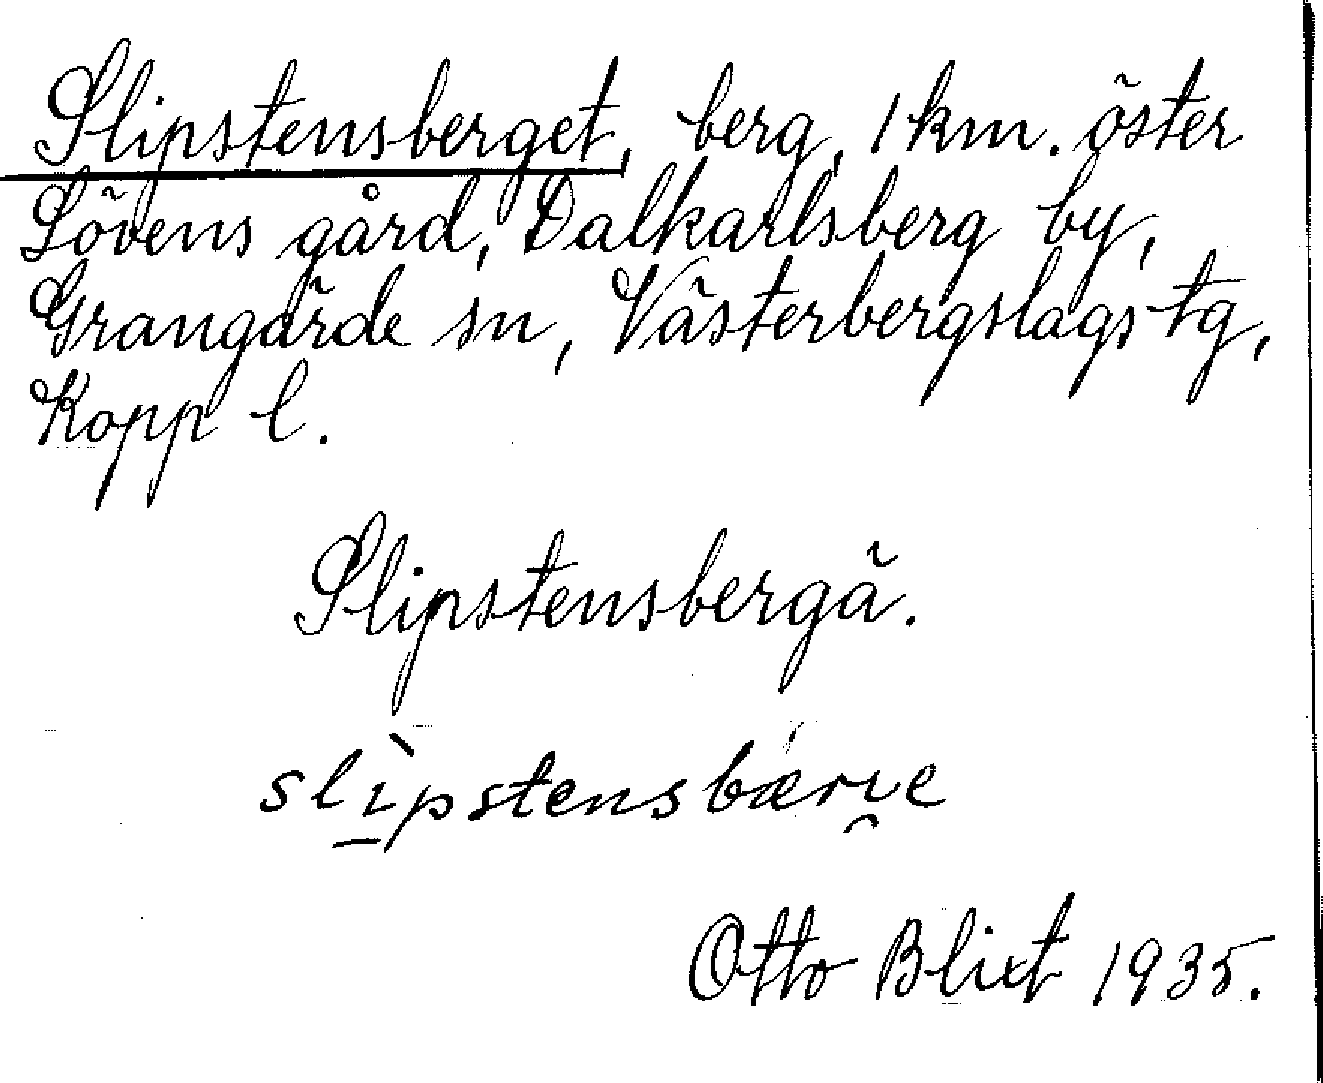 Slipstensberget, berg, 1 km. öster
Lövens gård, Dalkarlsberg by,
Grangärde sn, Västerbergslags tg,
Kopp l.
Slipstensbergä.
slìpstensbærɪ̯e
Otto Blixt 1935.